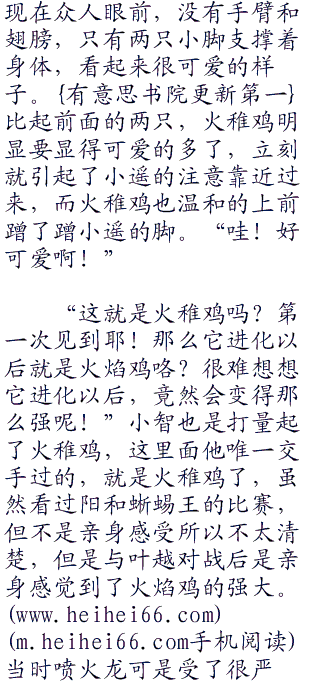 现在众人眼前，没有手臂和
翅膀，只有两只小脚支撑着
身体，看起来很可爱的样
子。{有意思书院更新第一}
比起前面的两只，火稚鸡明
显要显得可爱的多了，立刻
就引起了小遥的注意靠近过
来，而火稚鸡也温和的上前
蹭了蹭小遥的脚。“哇！好
可爱啊！”
“这就是火稚鸡吗？第
一次见到耶！那么它进化以
后就是火焰鸡咯？很难想想
它进化以后，竟然会变得那
么强呢！”小智也是打量起
了火稚鸡，这里面他唯一交
手过的，就是火稚鸡了，虽
然看过阳和蜥蜴王的比赛，
但不是亲身感受所以不太清
楚，但是与叶越对战后是亲
身感觉到了火焰鸡的强大。
(www.heihei66.com)
(m.heihei66.com手机阅读)
当时喷火龙可是受了很严